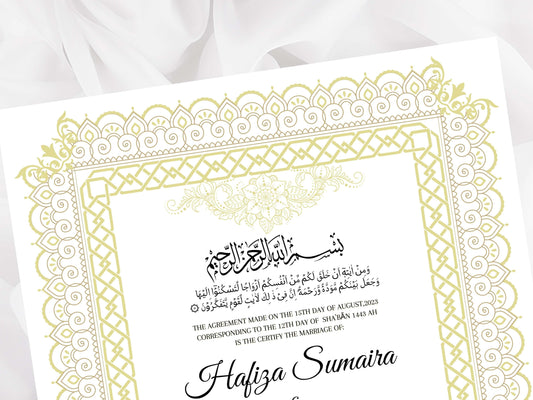 بسم الله الرحمن الرحيم
وَمِنْ اٰيٰتِهٖٓ اَنْ خَلَقَ لَكُمْ مِّنْ اَنْفُسِكُمْ اَزْوَاجًا لِّتَسْكُنُوْٓا اِلَيْهَا
وَجَعَلَ بَيْنَكُمْ مَّوَدَّةً وَّرَحْمَةً ۗاِنَّ فِيْ ذٰلِكَ لَاٰيٰتٍ لِّقَوْمٍ يَّتَفَكَّرُوْنَ
THE AGREEMENT MADE ON THE 15TH DAY OF AUGUST,2023
CORRESPONDING TO THE 12TH DAY OF SHA'BĀN 1443 AH
IS THE CERTIFY THE MARRIAGE OF:
Hafiza Sumaira